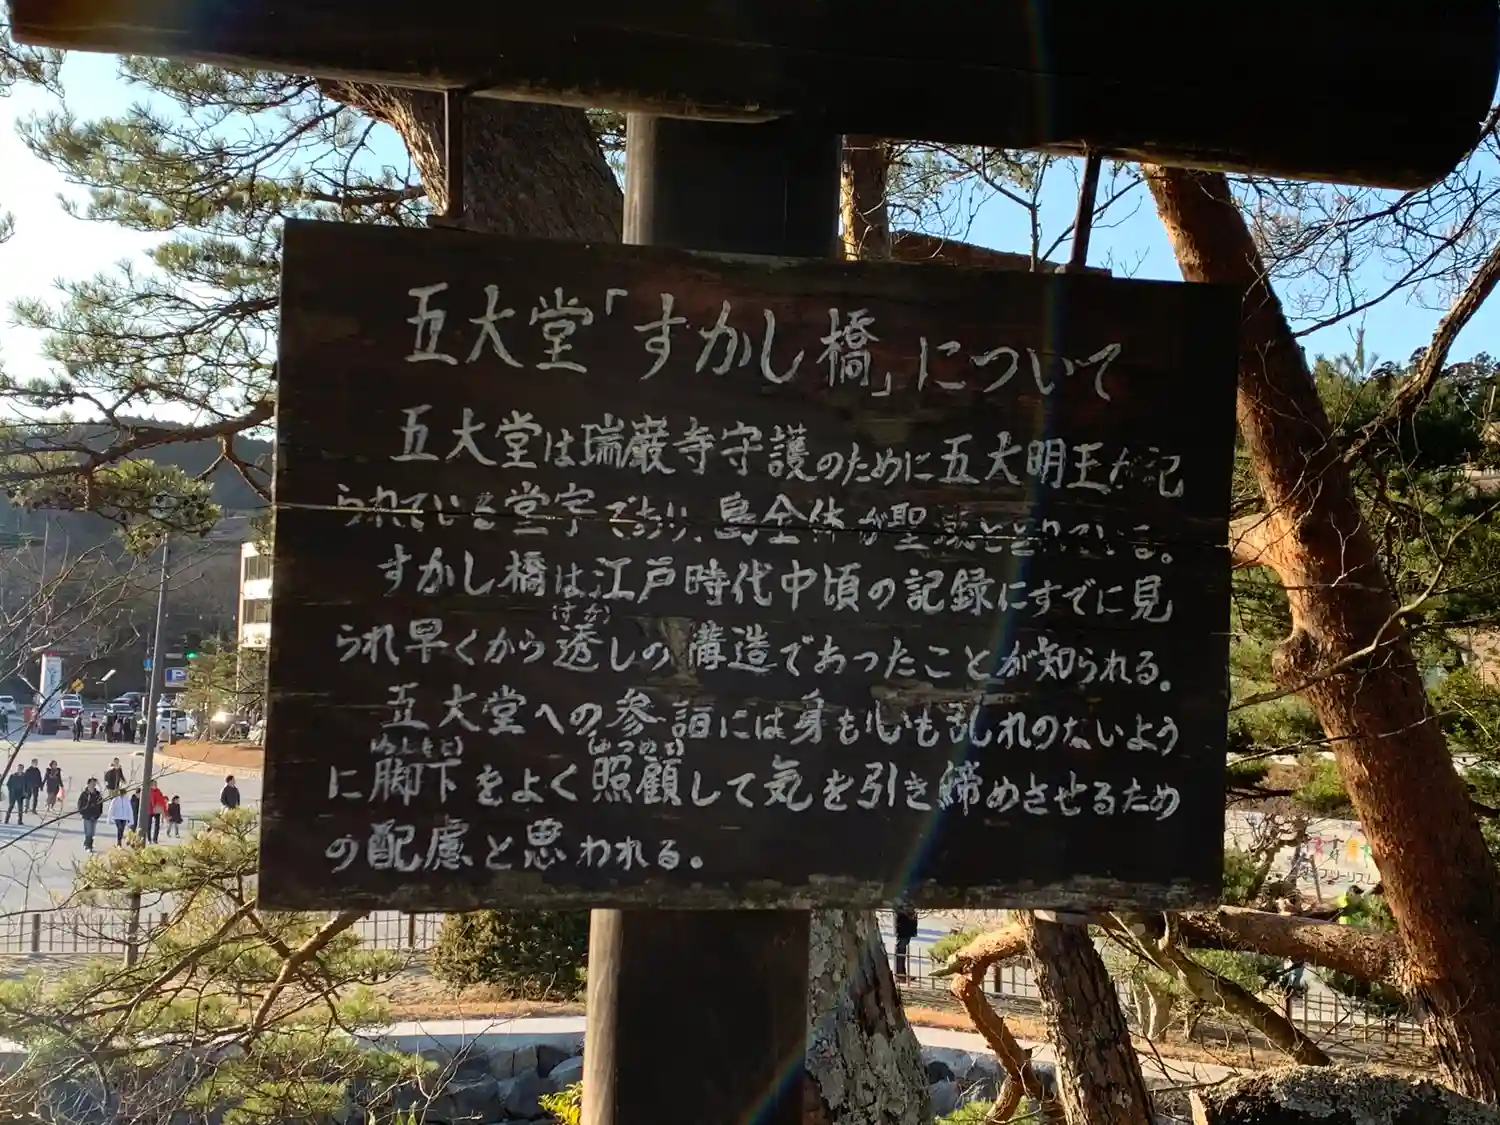 五大堂「すかし橋」について
五大堂は瑞巌寺守護のために五大明王が祀
られている堂宇であり、島全体が聖域とされている。
すかし橋は江戸時代中頃の記録にすでに見
られ早くから透しの構造であったことが知られる。
五大堂への参詣には身も心も乱れのないよう
に脚下をよく照顧して気を引き締めさせるため
の配慮と思われる。
P